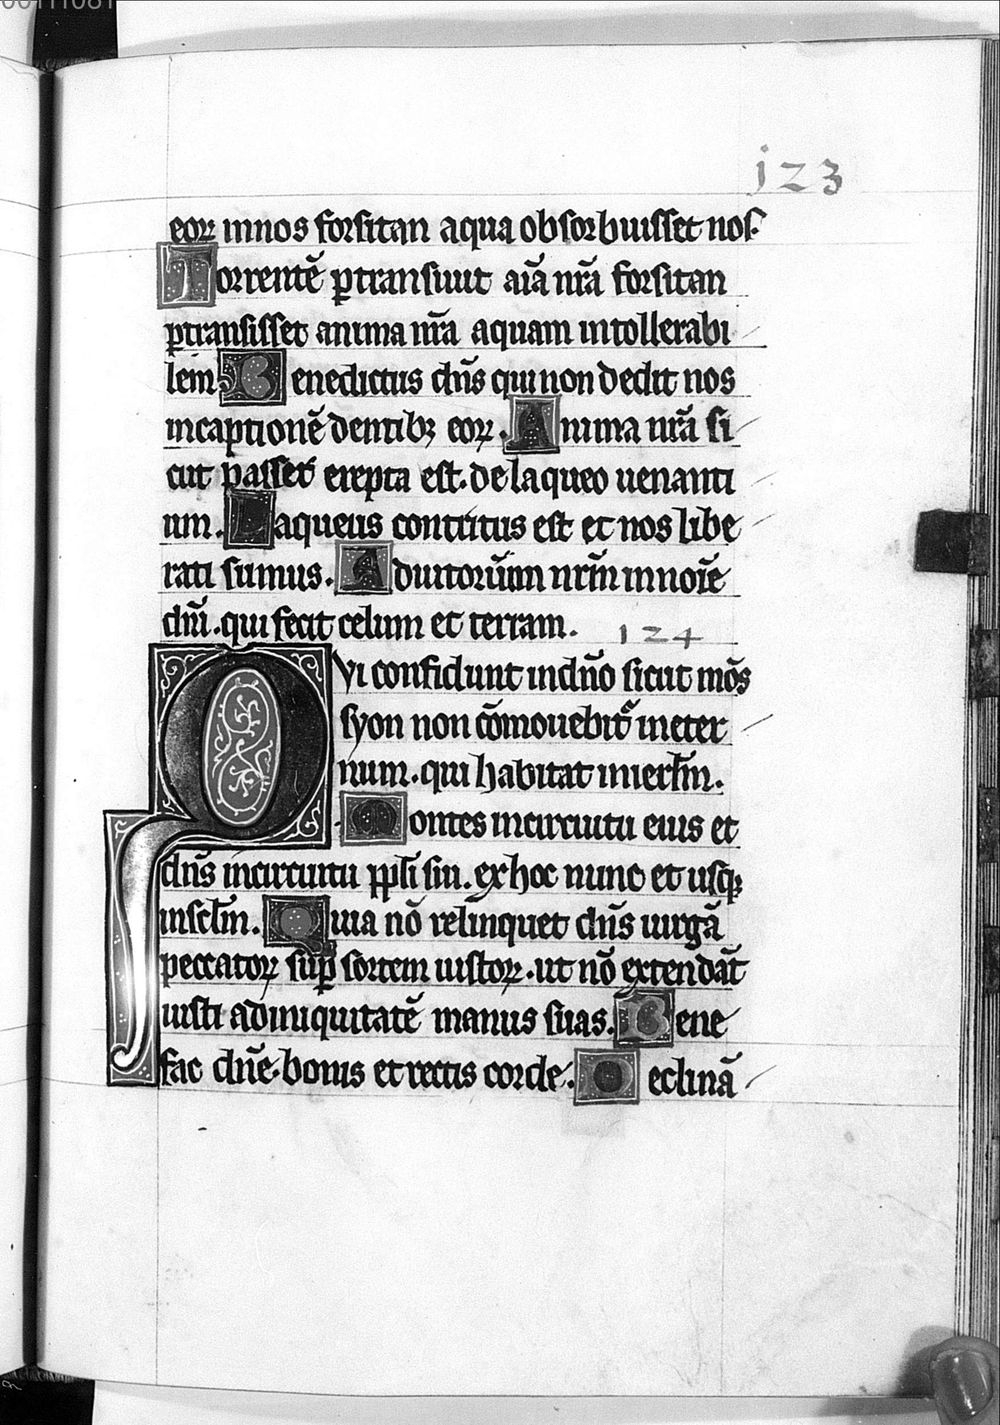 00111081
123
eoꝝ innos forsitan aqua obsorbuisset nos.
Torrentē ꝑtransiuit aīā nrā forsitan
ꝑtransisset anima nrā aquam intollerabi
lem Benedictus dn̄s qui non dedit nos
incaptionē dentibꝫ eoꝝ. Anima nrā si
cut passer erepta est. de laqueo uenanti
um. Laqueus contritus est et nos libe
rati sumus. Adiutoriūm nrm̄ innoīe
dn̄i. qui fecit celum et terram. 124
QVi confidunt indn̄o sicut mōs
syon non cōmouebit᷑ ineter
num. qui habitat inierl̄m.
Montes incircuitu eius et
dn̄s incircuitu ppl̄i sui. ex hoc nunc et usqꝫ
inscl̄m. Quia nō relinquet dn̄s uirgā
peccatoꝝ sup̄ sortem iustoꝝ. ut nō extendāt
iusti adiniquitatē manus suas. Bene
fac dn̄e. bonis et rectis corde. Declinā